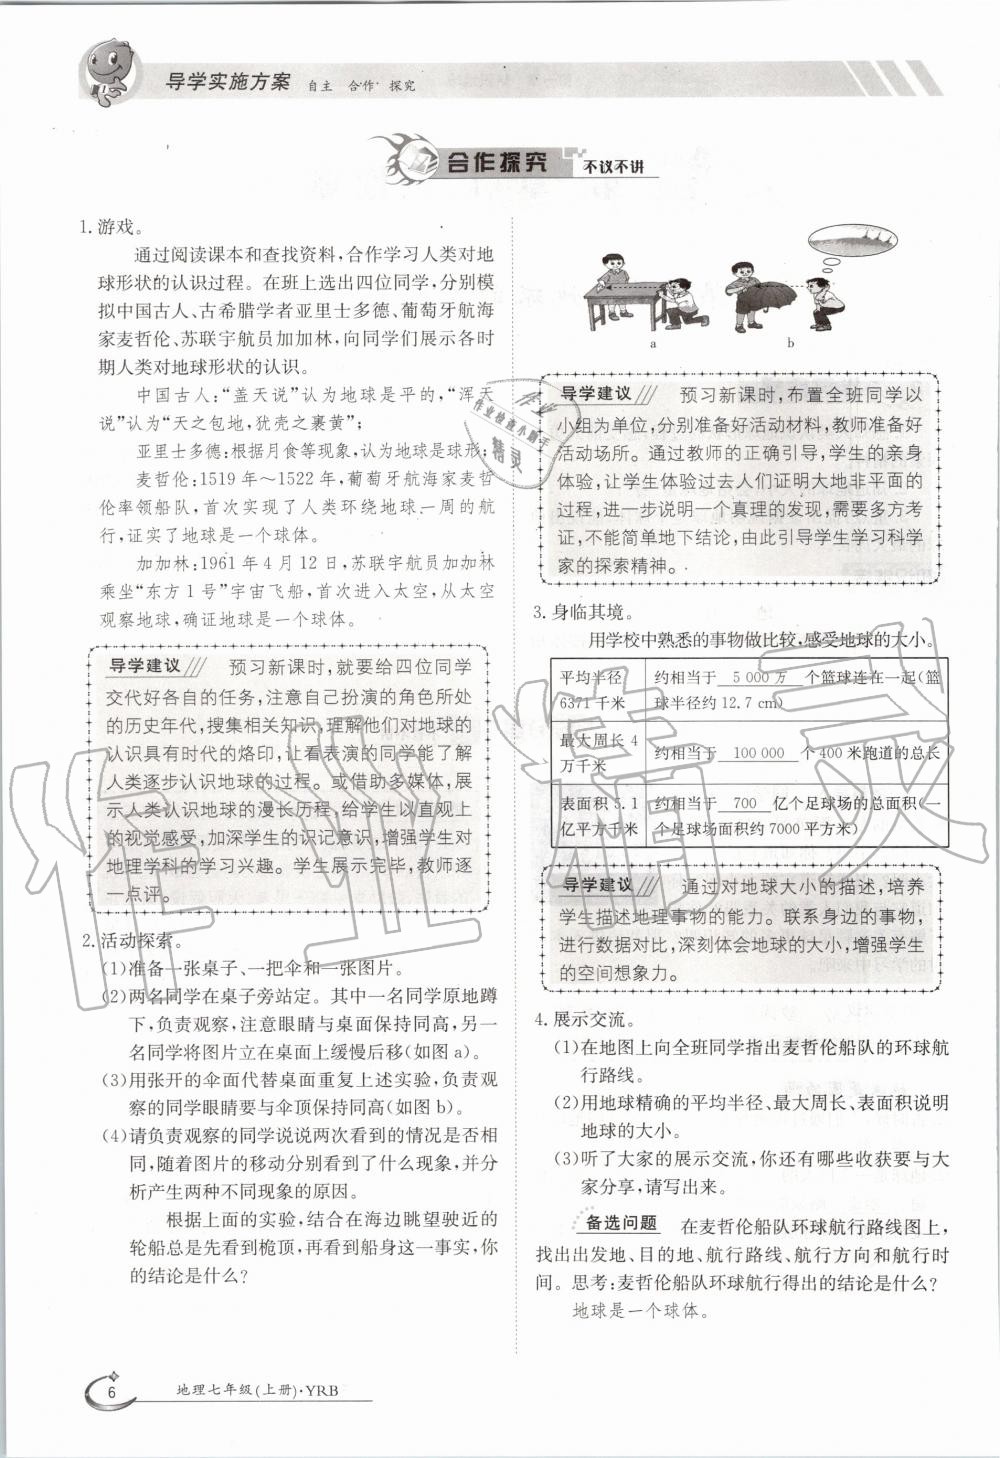 导学实施方案 自主 合作 探究
合作探究 不议不讲
1. 游戏。
通过阅读课本和查找资料,合作学习人类对地
球形状的认识过程。在班上选出四位同学,分别模
拟中国古人、古希腊学者亚里士多德、葡萄牙航海
家麦哲伦、苏联宇航员加加林,向同学们展示各时
期人类对地球形状的认识。
中国古人:“盖天说”认为地球是平的,“浑天
说”认为“天之包地,犹壳之裹黄”;
亚里士多德:根据月食等现象,认为地球是球形;
麦哲伦:1519 年～1522 年,葡萄牙航海家麦哲
伦率领船队,首次实现了人类环绕地球一周的航
行,证实了地球是一个球体。
加加林:1961 年 4 月 12 日,苏联宇航员加加林
乘坐“东方 1 号”宇宙飞船,首次进入太空,从太空
观察地球,确证地球是一个球体。
导学建议 预习新课时,就要给四位同学
交代好各自的任务,注意自己扮演的角色所处
的历史年代,搜集相关知识,理解他们对地球的
认识具有时代的烙印,让看表演的同学能了解
人类逐步认识地球的过程。或借助多媒体,展
示人类认识地球的漫长历程,给学生以直观上
的视觉感受,加深学生的识记意识,增强学生对
地理学科的学习兴趣。学生展示完毕,教师逐
一点评。
2. 活动探索。
(1)准备一张桌子、一把伞和一张图片。
(2)两名同学在桌子旁站定。其中一名同学原地蹲
下,负责观察,注意眼睛与桌面保持同高,另一
名同学将图片立在桌面上缓慢后移(如图 a)。
(3)用张开的伞面代替桌面重复上述实验,负责观
察的同学眼睛要与伞顶保持同高(如图 b)。
(4)请负责观察的同学说说两次看到的情况是否相
同,随着图片的移动分别看到了什么现象,并分
析产生两种不同现象的原因。
根据上面的实验,结合在海边眺望驶近的
轮船总是先看到桅顶,再看到船身这一事实,你
的结论是什么?
a b
导学建议 预习新课时,布置全班同学以
小组为单位,分别准备好活动材料,教师准备好
活动场所。通过教师的正确引导,学生的亲身
体验,让学生体验过去人们证明大地非平面的
过程,进一步说明一个真理的发现,需要多方考
证,不能简单地下结论,由此引导学生学习科学
家的探索精神。
3. 身临其境。
用学校中熟悉的事物做比较,感受地球的大小。
平均半径 约相当于 5 000 万 个篮球连在一起(篮
6371 千米 球半径约 12.7 cm)
最大周长 4 约相当于 100 000 个 400 米跑道的总长
万千米
表面积 5.1 约相当于 700 亿个足球场的总面积(一
亿平方千米 个足球场面积约 7000 平方米)
导学建议 通过对地球大小的描述,培养
学生描述地理事物的能力。联系身边的事物,
进行数据对比,深刻体会地球的大小,增强学生
的空间想象力。
4. 展示交流。
(1)在地图上向全班同学指出麦哲伦船队的环球航
行路线。
(2)用地球精确的平均半径、最大周长、表面积说明
地球的大小。
(3)听了大家的展示交流,你还有哪些收获要与大
家分享,请写出来。
备选问题 在麦哲伦船队环球航行路线图上,
找出出发地、目的地、航行路线、航行方向和航行时
间。思考:麦哲伦船队环球航行得出的结论是什么?
地球是一个球体。
6 地理七年级(上册)·YRB
作业精灵
作业
作业检查小助手
精灵